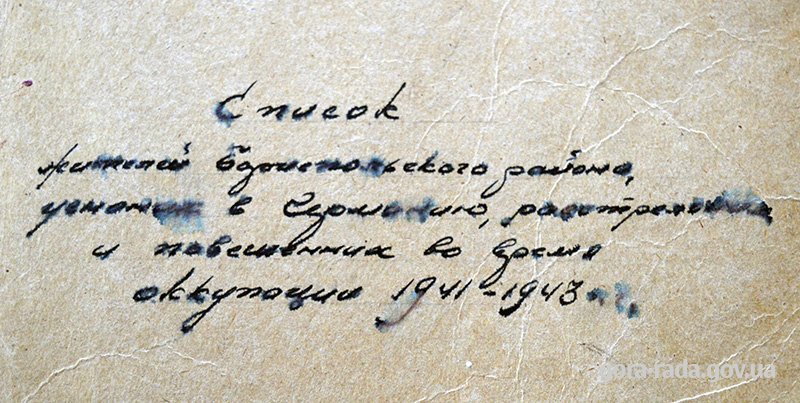 Список
жителей Бориспольского района,
угнаных в Германию, расстреляных
и повешенных во время
оккупации 1941-1943 г.г.
gora-rada.gov.ua